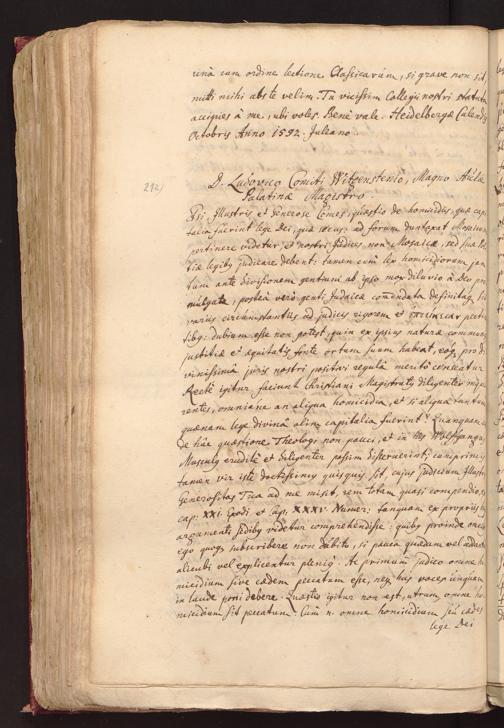 unà cum ordine lectione Classicarum, si grave non sit,
mitti mihi abs te velim. Tu vicissim Collegii nostri statuta
accipies à me, ubi voles. Benè vale. Heidelbergæ Calend
Octobris Anno 1592. Juliano
212
D. Ludovico Comiti Witgenstenio, Magno Aulæ
Palatinæ Magistro.
Etsi, Illustris et Generose Comes, quæstio de homicidiis, quæ cap
talia fuerint lege Dei, quæ secus: ad forum duntaxat Mosaicum
pertinere videtur, et nostri Judices non Mosaicæ, sed suæ
tiæ legibus judicare debent: tamen cùm lex homicidiorum jam
tum ante divisionem gentium ab ipso mox diluvio à Deo, pro
mulgata, posteà verò genti Judaicæ commendata definitaq. sit
variis circumstantiis ad judicis rigorem et
tibus: dubium esse non potest, quin ex ipsius naturæ communis
justitiæ et æquitatis fonte ortum suum habeat, eoq. pro di
vinissimâ juris nostri positivi regulâ meritò censeatur.
Rectè igitur faciunt Christiani Magistratus diligenter inqui
rentes, omniane an aliqua homicidia, et si aliqua tantum
quænam lege divinâ olim capitalia fuerint? Quanquam
de hâc quæstione Theologi non pauci, et in his Wolfgangus
Musculus eruditè et diligenter passim disseruerint: inprimis
tamen vir iste doctissimus quisquis sit, cujus judicium Illustris
Generositas Tua ad me misit, rem totam quasi compendio, ex
cap. XXI. Exodi et Cap. XXXV. Numer: tanquam ex propriis
argumenti sedibus videtur comprehendisse: quibus proinde
ego quoq. subscribere non dubito, si pauca quædam vel addantur
alicubi vel explicentur pleniùs. Ac primùm judico omne ho
micidium sive cædem peccatum esse, neq. has voces unquam
in laude poni debere. Quæstio igitur non est, utrum omne ho
micidium sit peccatum. Cùm n. omne homicidium seu cædes
lege Dei